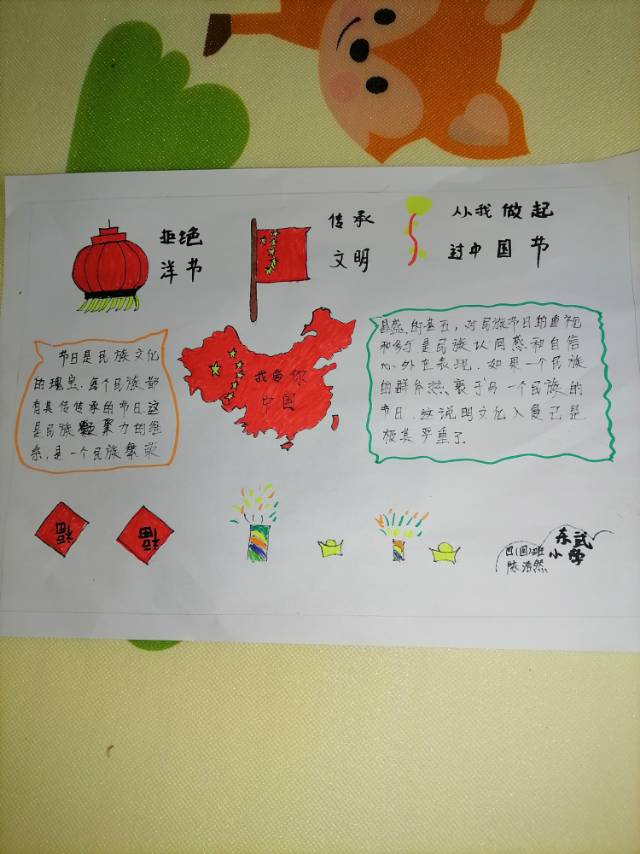 拒绝
洋节
传承
文明
从我做起
过中国节
节日是民族文化
的瑰宝.每个民族都
有其传传承的节日.这
是民族凝聚力的维
系,是一个民族繁荣
我爱你
中国
昌盛的基石,对民族节日的重视
和是民族认同感和自信
心外在表现.如果一个民族
的群体热衷于另一个民族的
节日.这说明文化入侵已是
极其严重了.
福
福
东武
小学
陈浩然